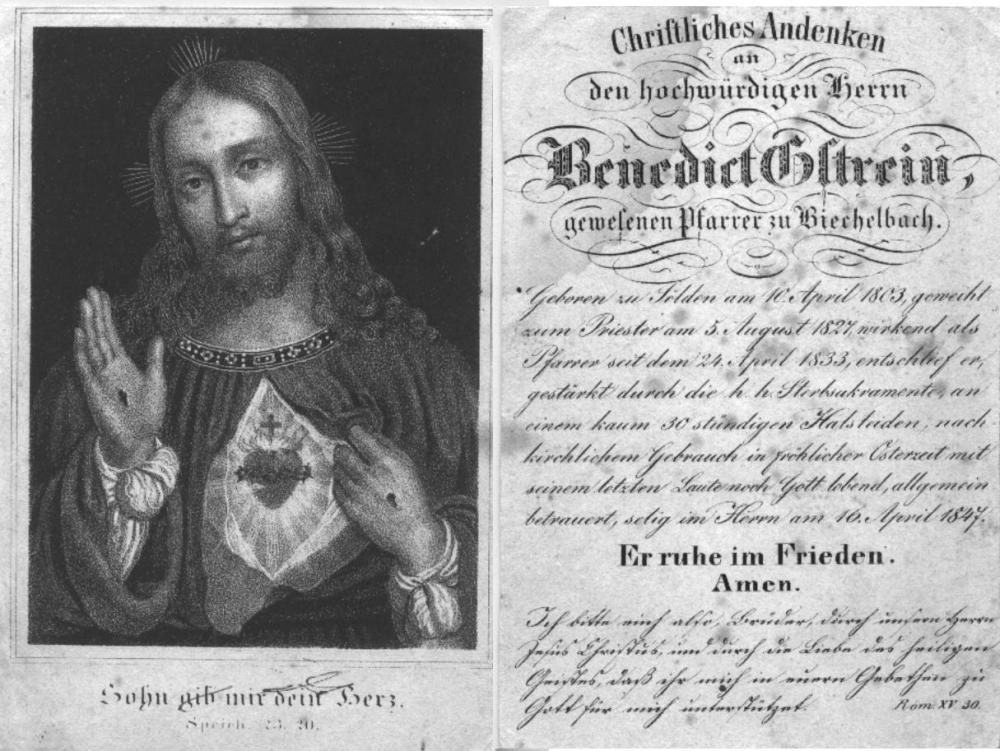 Sohn gib mir dein Herz.
Sprich. 23. 20.
Christliches Andenken
an
den hochwürdigen Herrn
Benedict Gstrein,
gewesenen Pfarrer zu Biechelbach.
Geboren zu Sölden am 10. April 1803, geweiht
zum Priester am 5. August 1827, wirkend als
Pfarrer seit dem 24. April 1833, entschlief er,
gestärkt durch die h. h. Sterbsakramente, an
einem kaum 30 stündigen Halsleiden, nach
kirchlichem Gebrauch in fröhlicher Osterzeit mit
seinem letzten Laute noch Gott lobend, allgemein
betrauert, selig im Herrn am 16. April 1847.
Er ruhe im Frieden.
Amen.
Ich bitte euch also, Brüder, durch unsern Herrn
Jesus Christus, und durch die Liebe des heiligen
Geistes, daß ihr mich in euern Gebethen zu
Gott für mich unterstützet. Röm. XV 30.